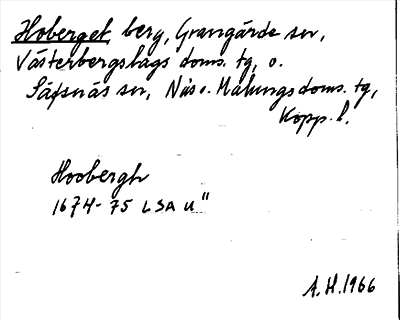 Hoberget, berg, Grangärde sn,
Västerbergslags doms. tg, o.
Säfsnäs sn, Nås o. Malungs doms. tg,
Kopp. l.
Hoobergh
1674-75 LSA u"
A.H. 1966